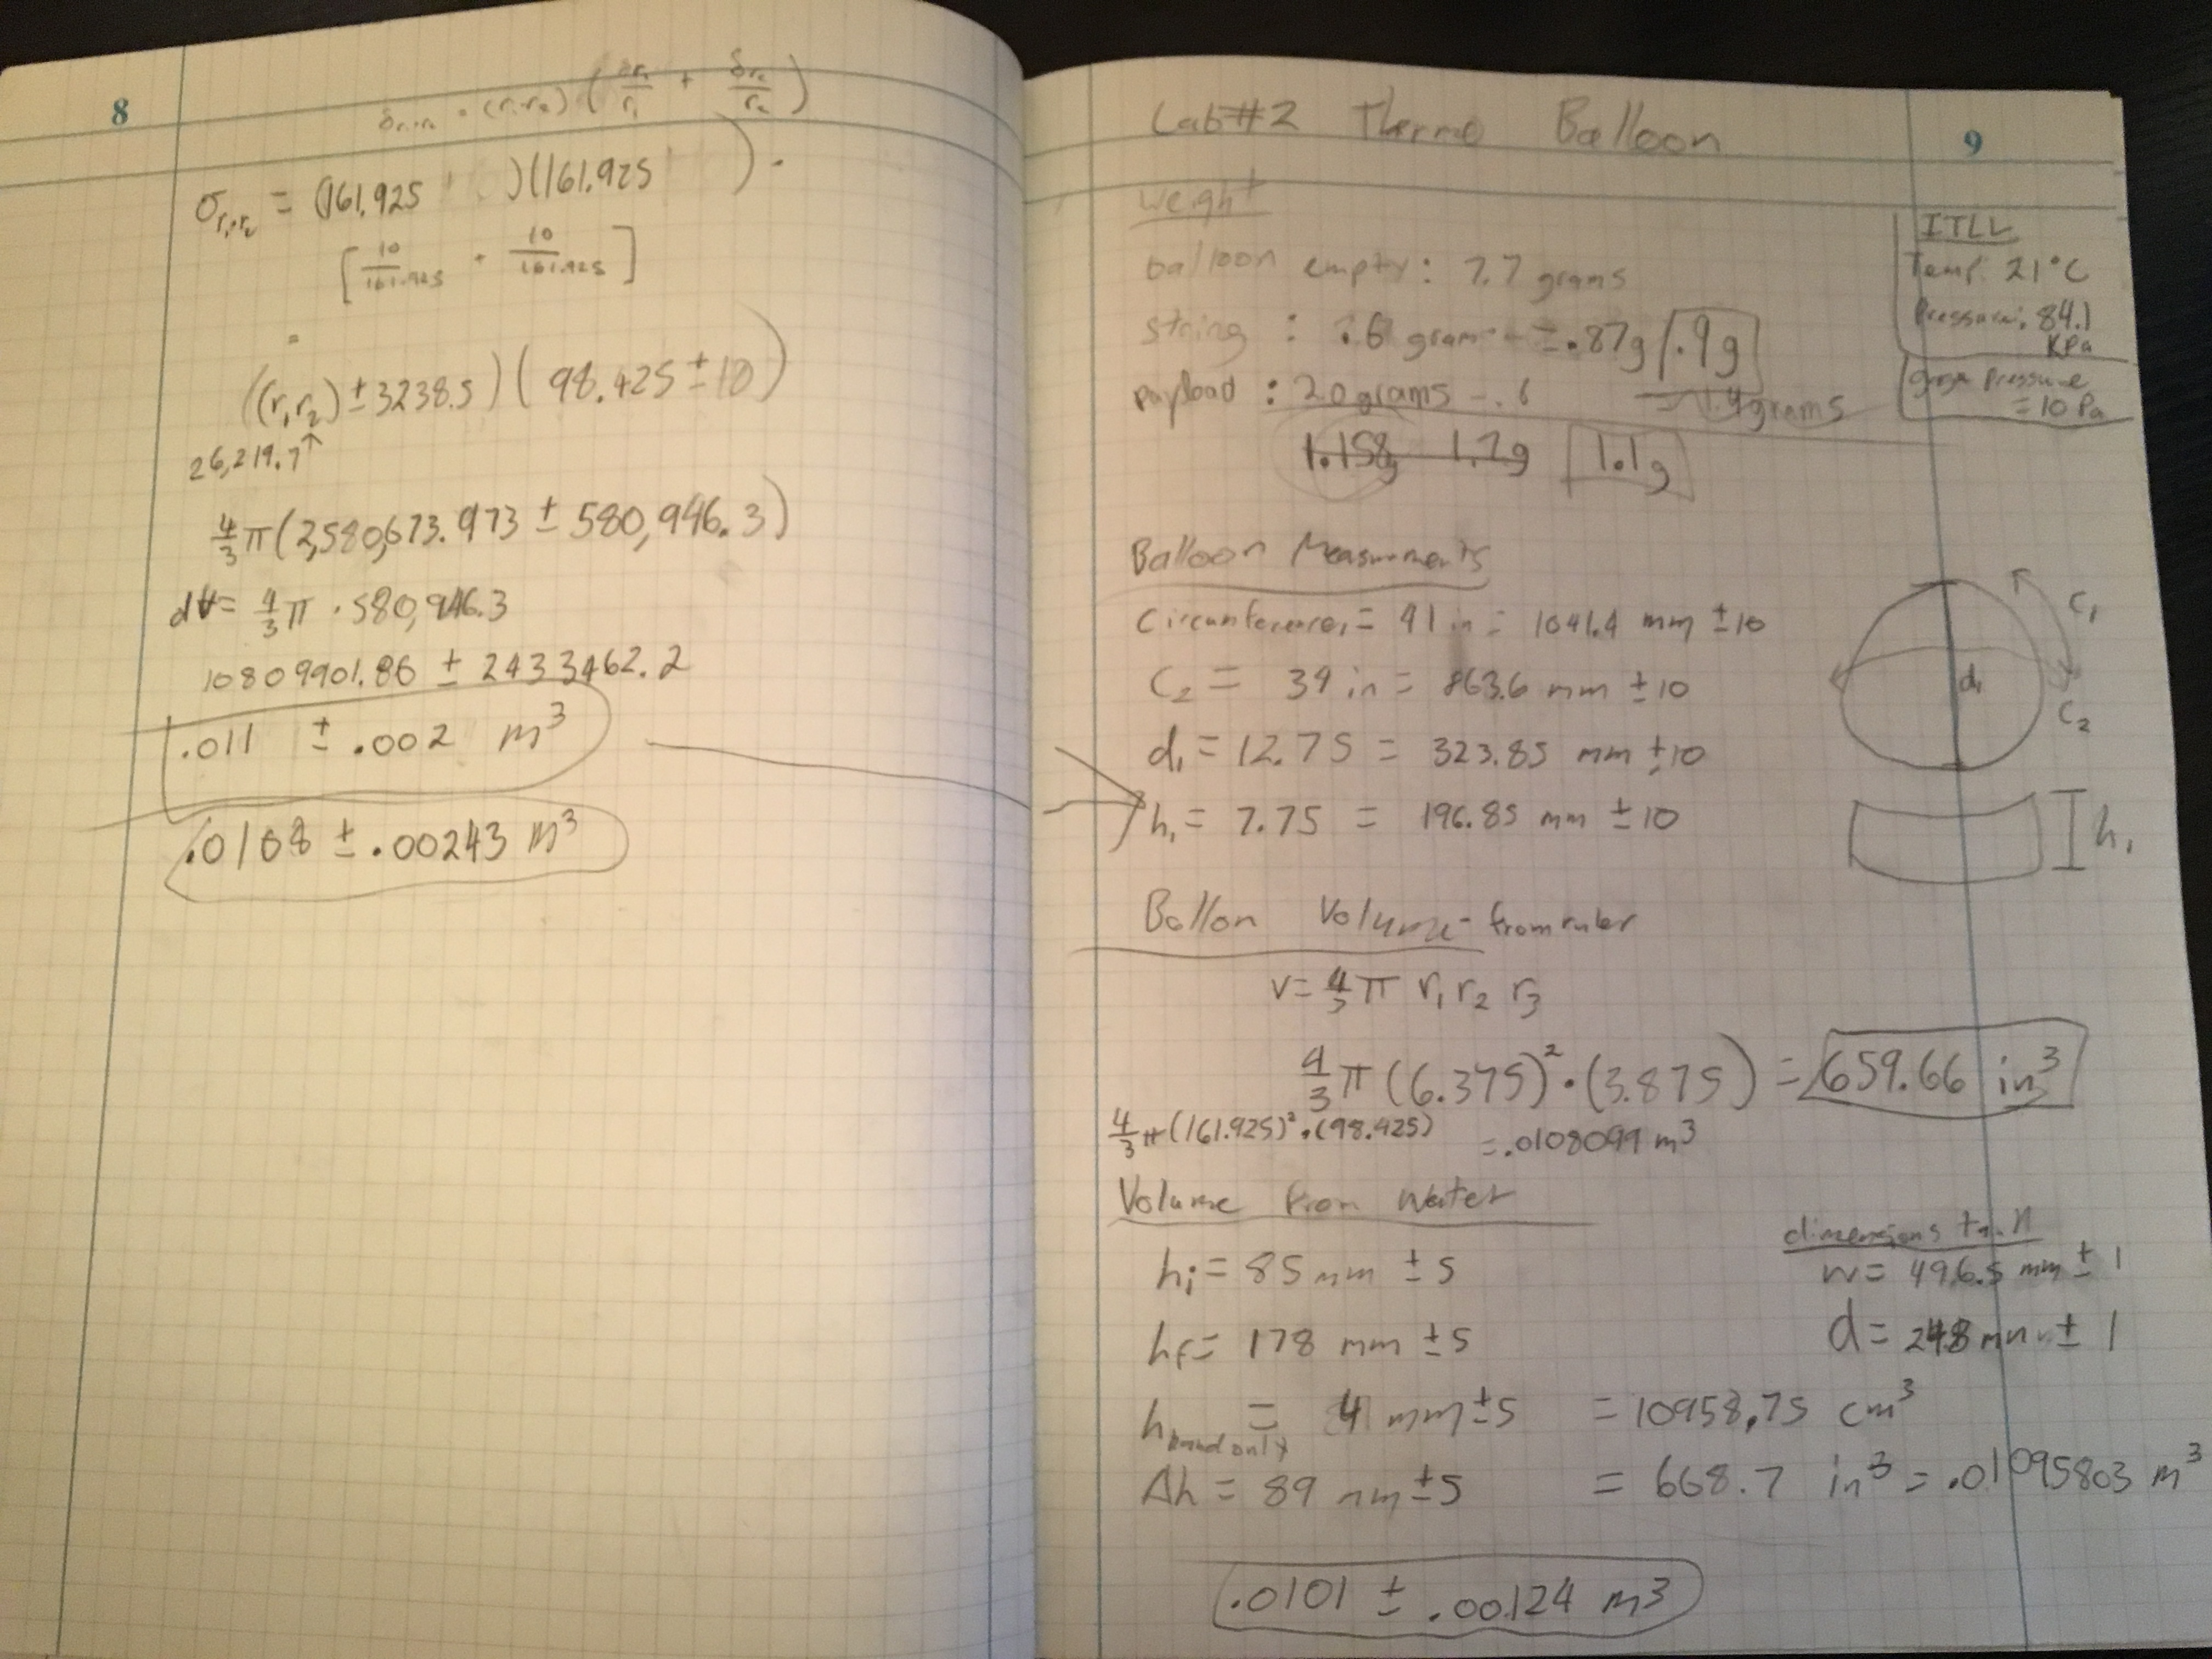 8
σr₁r₂ = (161.925)(161.925) ·
[10/161.925 + 10/161.925]
=
((r₁r₂) ± 3238.5)(98.425 ± 10)
26,219.7↑
4/3 π (2,580,673.973 ± 580,946.3)
dV = 4/3 π · 580,946.3
10809901.86 ± 2433462.2
.011 ± .002 m³
.0108 ± .00243 m³
9
Lab #2 Thermo Balloon
Weight
balloon empty: 7.7 grams
string : .6 grams .87g .9g
payload : 2.0 grams - .6 = 1.4 grams
1.158g 1.2g 1.1g
ITLL
Temp. 21°C
Pressure: 84.1 KPa
gage Pressure = 10 Pa
Balloon Measurments
Circumference₁ = 41 in = 1041.4 mm ± 10
C₂ = 34 in = 863.6 mm ± 10
d₁ = 12.75 = 323.85 mm ± 10
h₁ = 7.75 = 196.85 mm ± 10
C₁
d₁
C₂
h₁
Ballon Volume - from ruler
V = 4/3 π r₁ r₂ r₃
4/3 π (6.375)² · (3.875) = 659.66 in³
4/3 π (161.925)² · (98.425) = .0108099 m³
Volume from Water
dimensions tank
w = 496.5 mm ± 1
d = 248 mm ± 1
hᵢ = 85 mm ± 5
h_f = 178 mm ± 5
h hand only = 4 mm ± 5 = 10958.75 cm³
Δh = 89 mm ± 5 = 668.7 in³ = .01095803 m³
.0101 ± .00124 m³